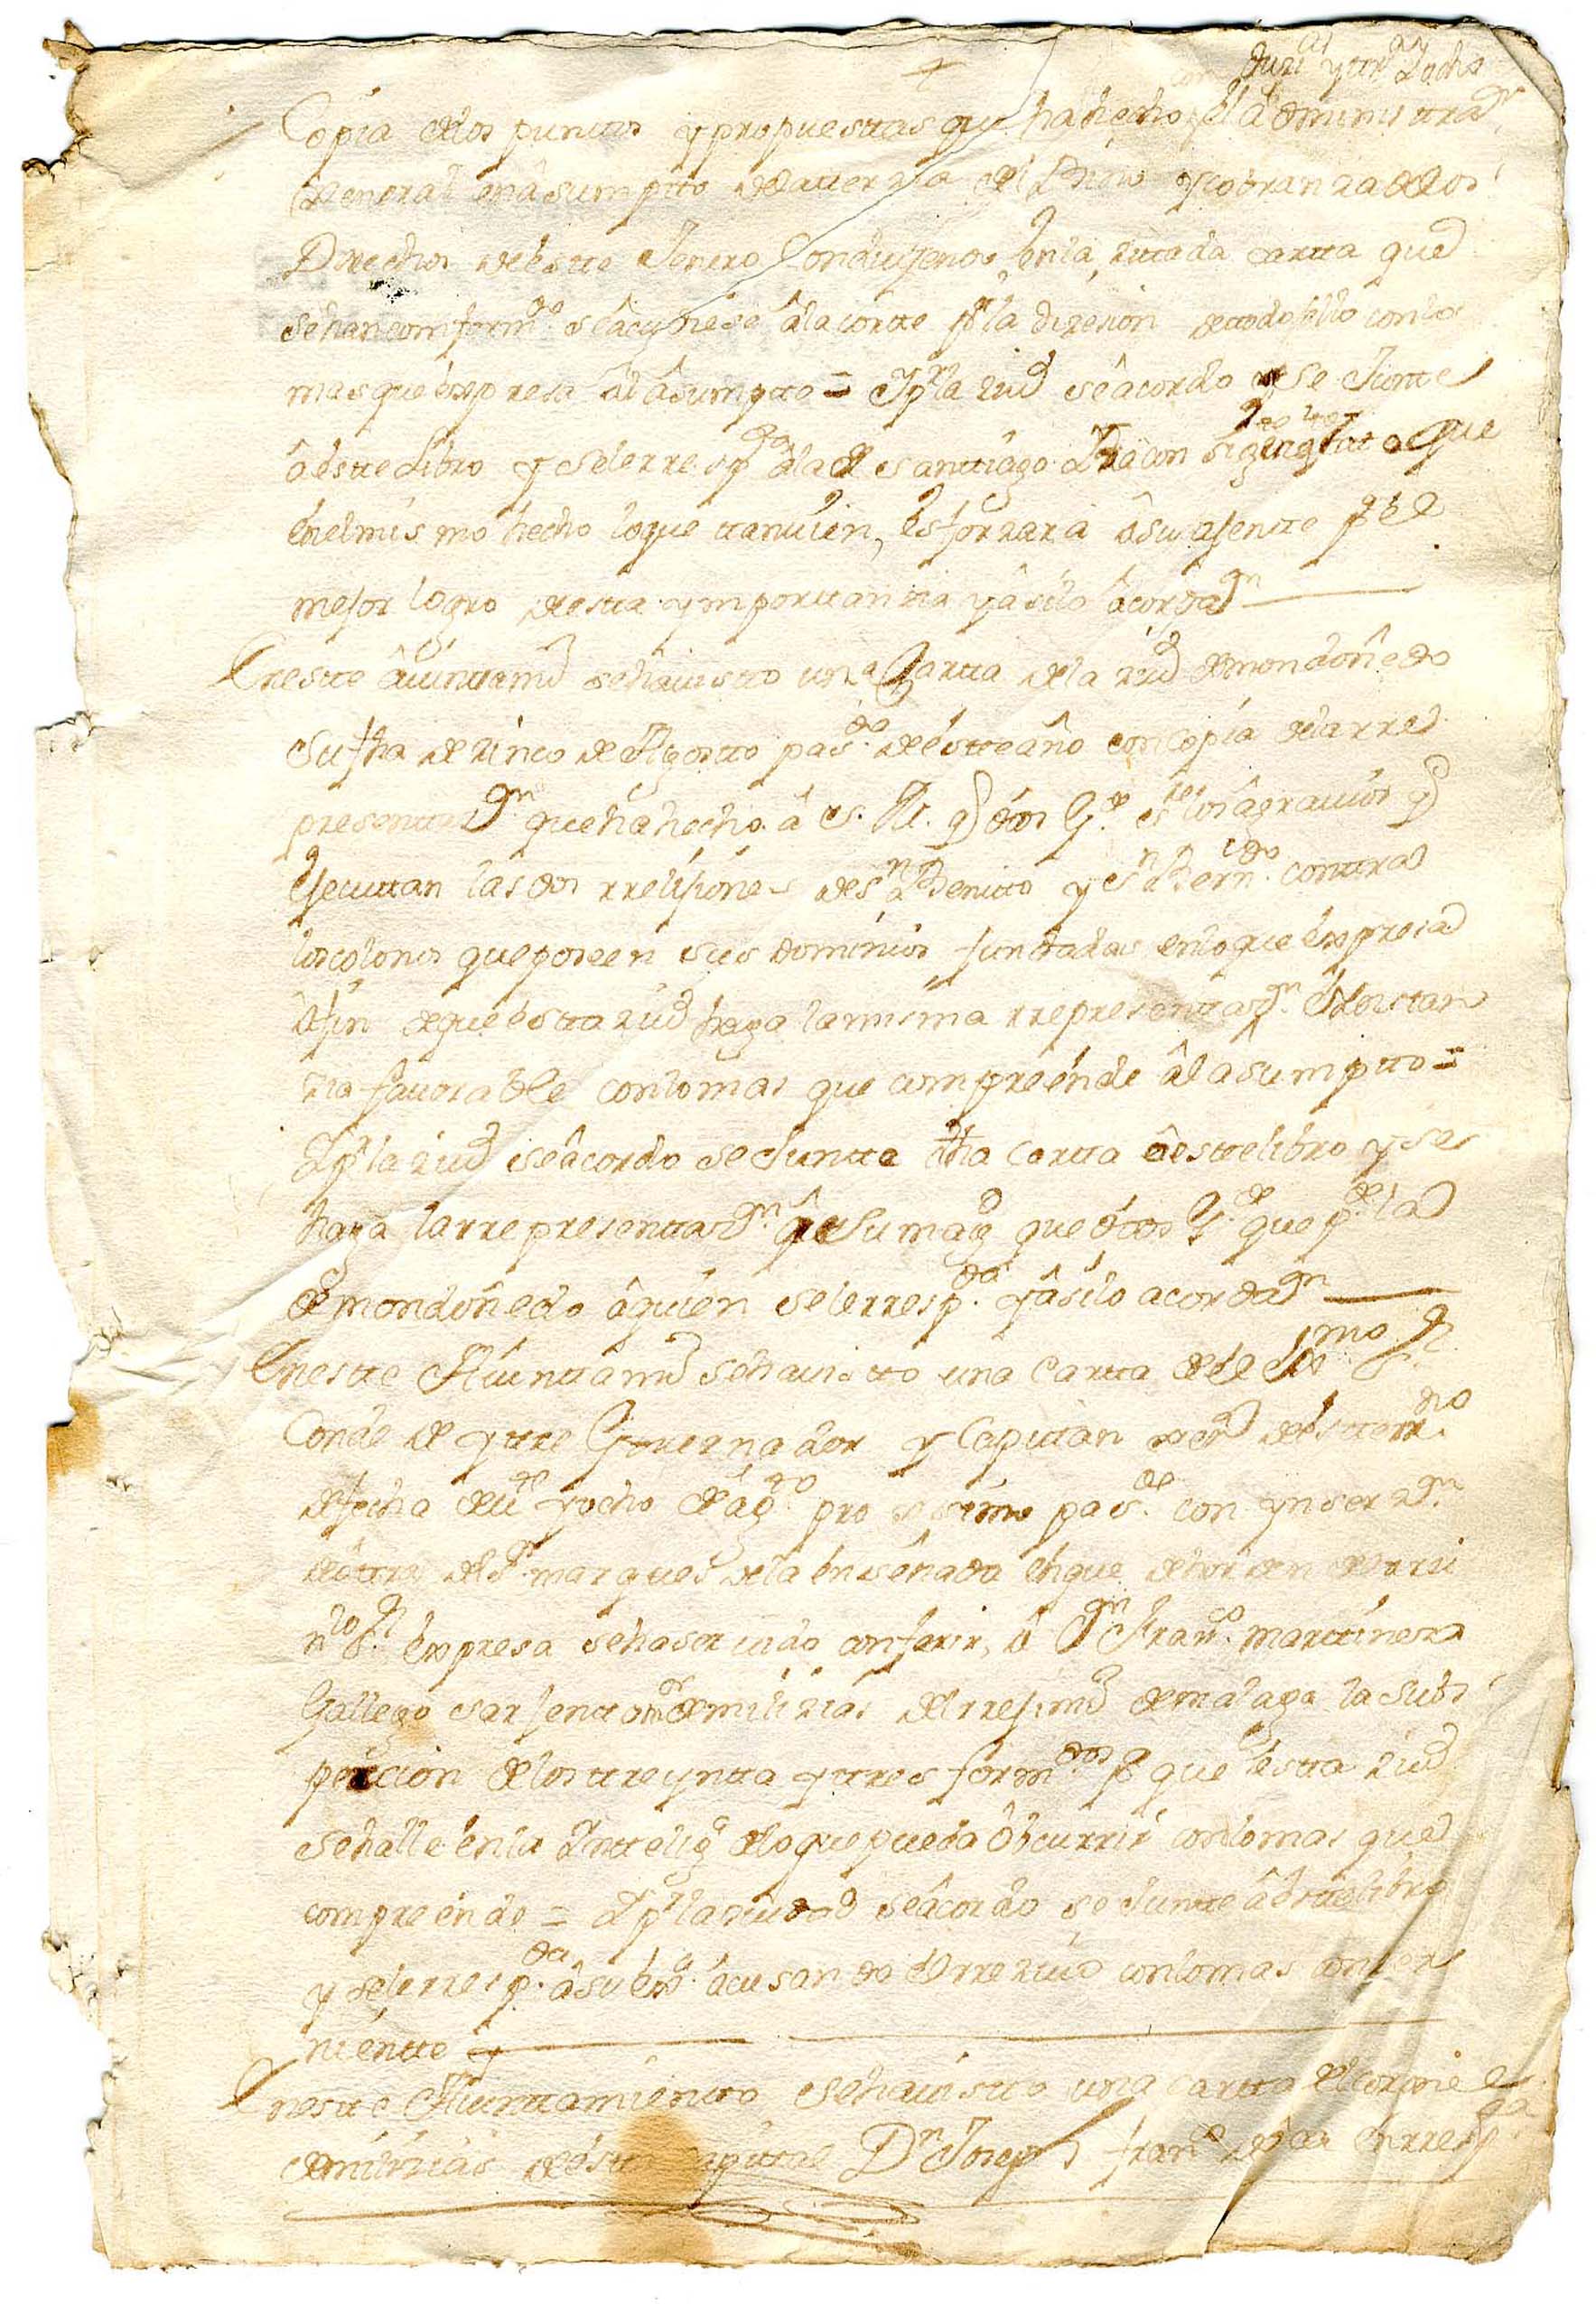 Copia de los puntos y propuestas que ha hecho el administrad.r
General en asumpto de la tterzia del y cobranza de los
Derechos de este Jenero Conduzenos en la zitada cartta que
se han comform.do se acudiese â la cortte p.r la dizesion de ttodo ello con lo
mas que expresa âl âsumptto = Y p.r la ziud se acordo que se Juntte
â este Libro y se le rresp.da â la de Santtiago
en el mismo hecho lo que ttanvien, esforzara â su ajentte p.a el
mejor logro de esta ymporttanzia y âsi lo âcordar.on
En este âiunttam.to se ha vistto una Cartta de la ziud de mondoñedo
su fha de zinco de Agosto pas.do de este año con copia de la rre
presenttaz.on que ha hecho â S. M. q.e Dios G.e s.re los âgravios q.e
ejecuttan las dos rrelijiones de S.n Benitto y S.n Bern.do conttra
los colonos que poseen sus dominios fundadas en lo que expresa
â fin de que esta ziud haga la misma rrepresenttaz.on
favorable con lo mas que compreênde âl asumptto =
Y p.r la ziud se âcordo se Juntte dha cartta â este libro y se
haga la rrepresenttaz.on â su mag.d que Dios G.e que p.de la
de mondoñedo â quien se le rresp.da y âsi lo acordar.on
En este Aiunttam.to se ha vistto una Cartta de el Ex.mo S.r
Conde de yttre Governador y Capittan xen.l de este rreino
de fecha de v.te y ocho de ag.to procsimo pas.do con ynserz.on
de ôttra del S.r marques de la ensenada en que de horden de
expresa se ha servido conferir, â D.n Fran.co marttinez
Gallego sarjentto m.or de milizias del rrejim.to de malaga la subs
peccion de los ttreyntta y ttres form.dos p.a que esta ziud
se halle en la Inttelig.a de lo que pueda ôbcurrir con lo mas que
compreênde = Y p.r la ziudad se âcordo se Juntte â este libro
y se le rresp.da â su ex.a acusando el rrezivo con lo mas conzer
nientte
En este Aiunttamientto se ha vistto una cartta del coronel
de milizias de esta capittal D.n Joseph Fran.co en rresp.ta